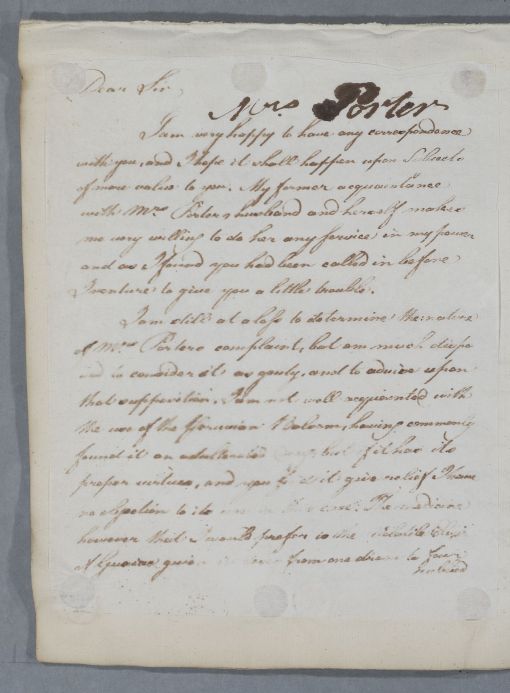 Dear Sir,
Mrs Porter
I am very happy to have any correspondence
with you, and I hope it shall happen upon Subjects
of more value to you. My former acquaintance
with Mrs Porters husband and herself makes
me very willing to do her any service in my power
and as I found you had been called in before
I venture to give you a little trouble.
I am still at a loss to determine the nature
of Mrs Porters complaint, but am much dispo
sed to consider it as gouty, and to advise upon
that supposition. I am not well acquainted with
the use of the Peruvian Balsam, having commonly
found it an adulterated but if it has its
proper virtues, and you it give relief I have
no objection to its in this case. The medicine
however that I would prefer is the volatile Elixir
of Guaiac given from one dram to four